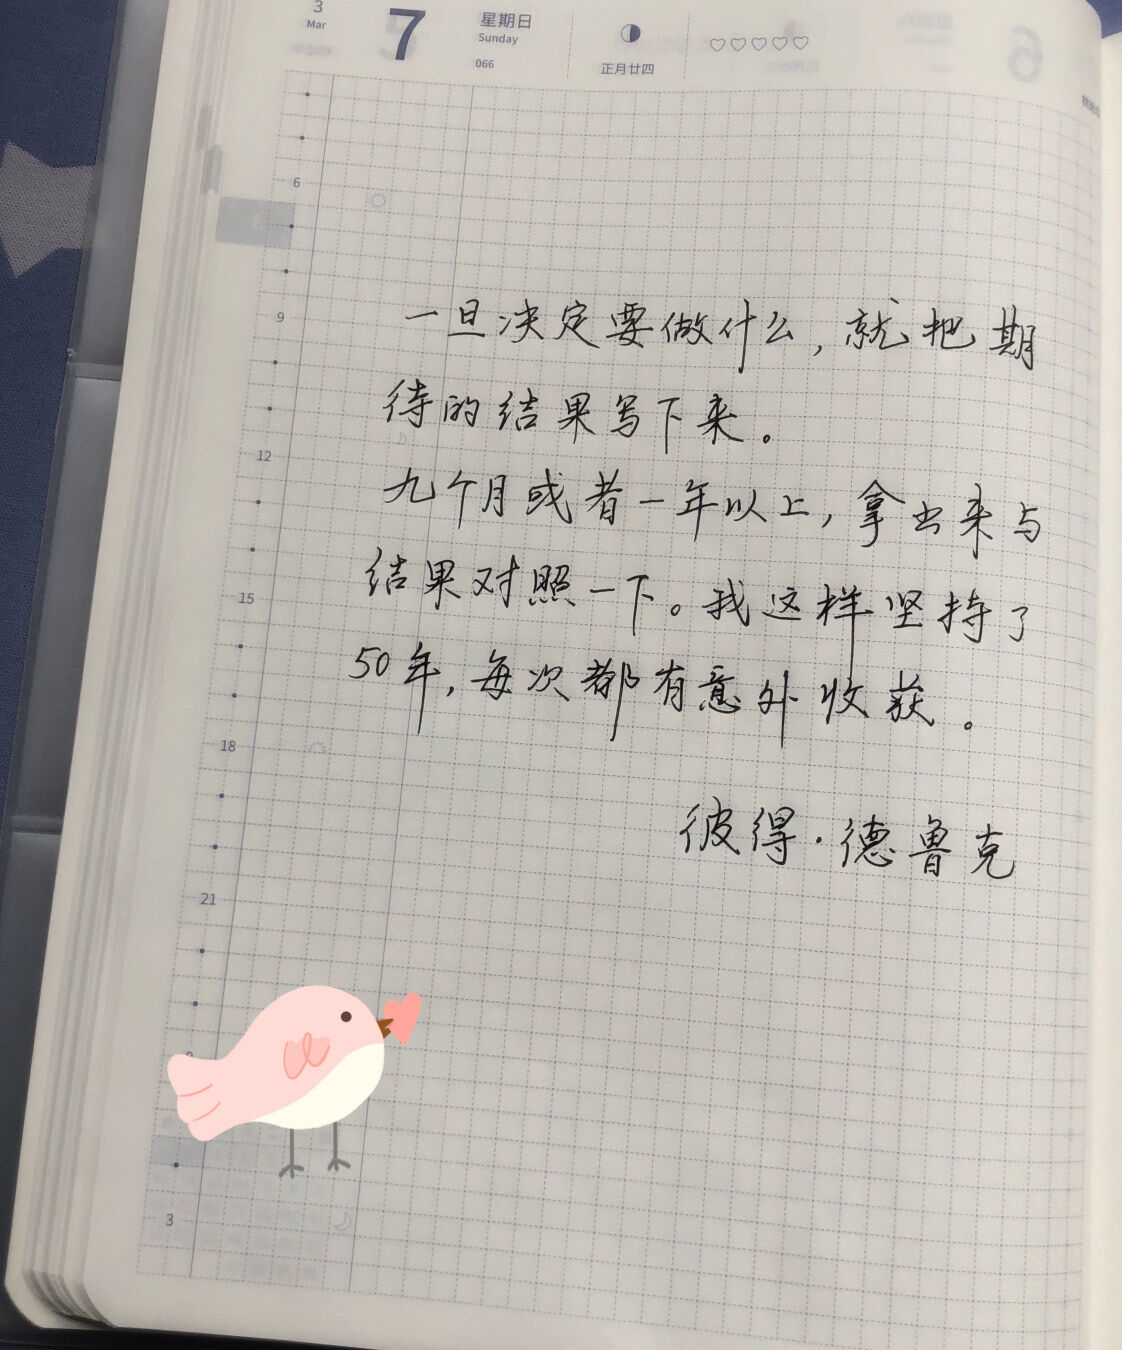 3
Mar
7
星期日
Sunday
066
正月廿四
6
6
9
12
15
18
21
3
一旦决定要做什么,就把期
待的结果写下来。
九个月或者一年以上,拿出来与
结果对照一下。我这样坚持了
50年,每次都有意外收获。
彼得·德鲁克